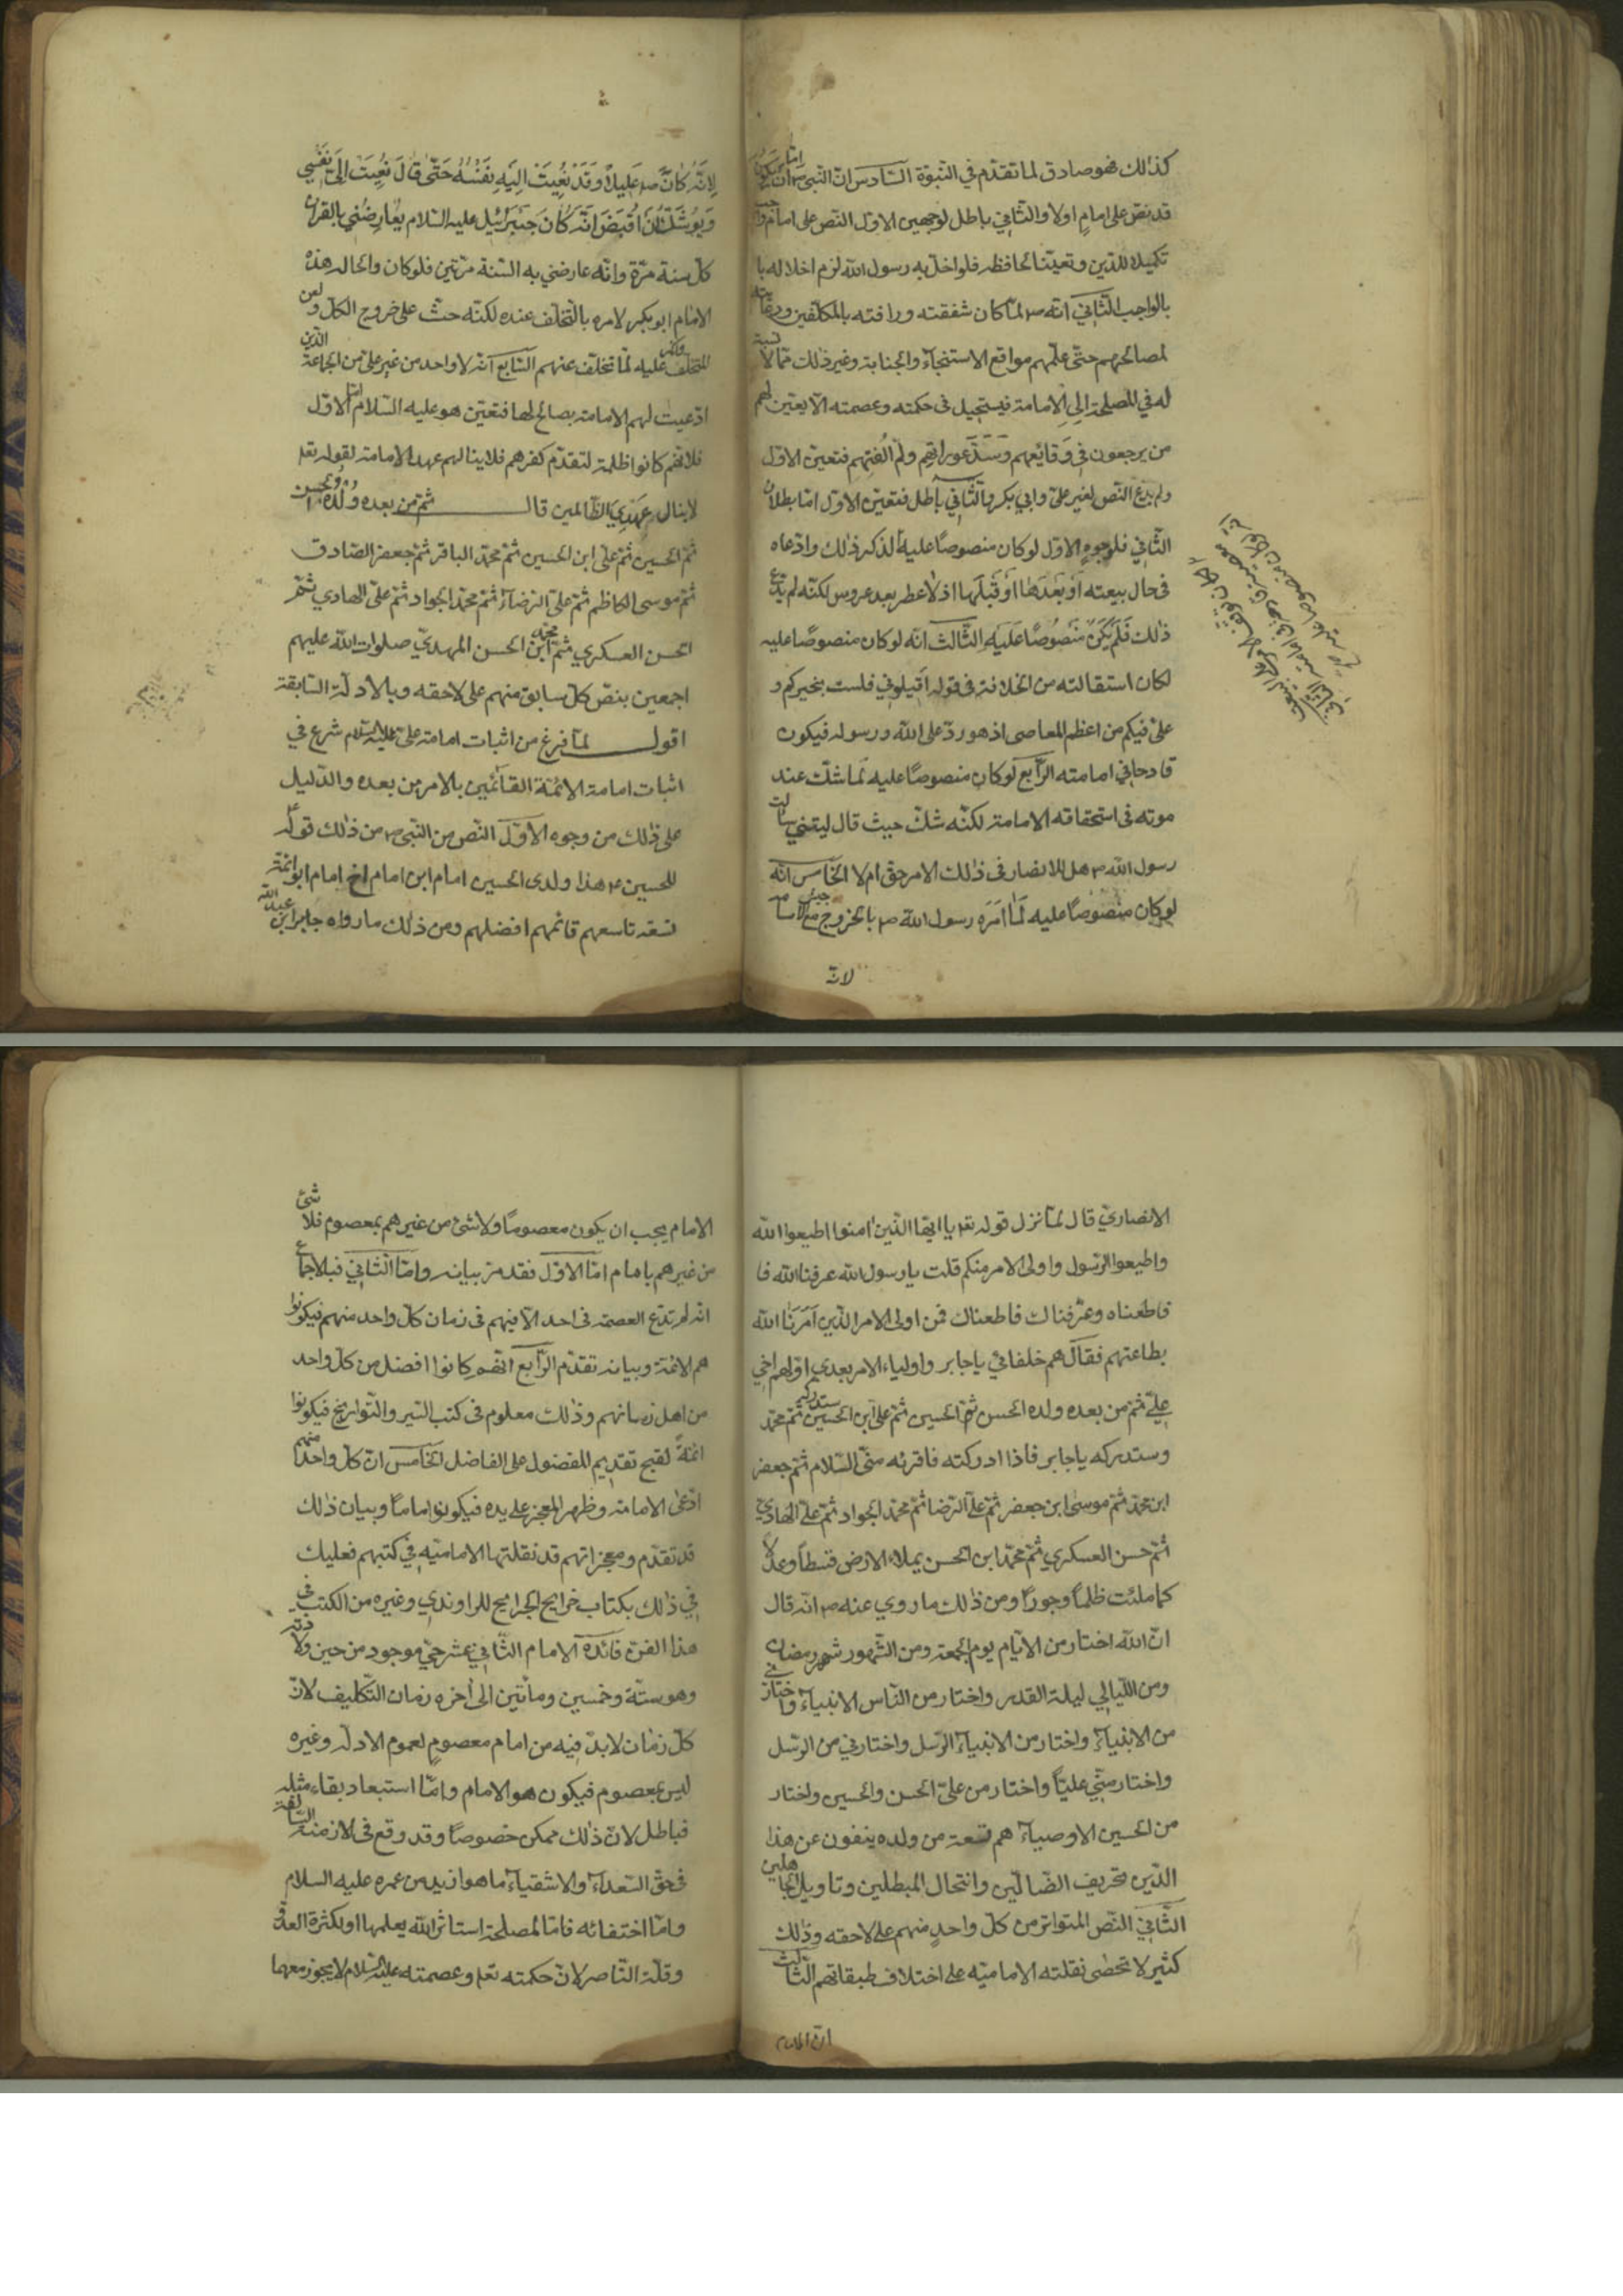 كذلك فهو صادق لما تقدّم في النبوّة السّادس انّ النّبي ص امّا ان يكون
قد نصّ على امامٍ اولا والثّاني باطل لوجهين الاوّل النّص على امام واجب
تكميلا للدّين وتعيّنا لحافظه فلو اخلّ به رسول الله لزم اخلاله با
بالواجب الثّاني انّه ص لمّا كان شفقته ورافته بالمكلّفين ورعايته
لمصالحهم حتّى علّمهم مواقع الاستنجآء والجنابة وغير ذلك ممّا لا نسبة
له في المصلحة الى الامامة فيستحيل في حكمته وعصمته الّا يعيّن لهم
من يرجعون في وقائعهم وسدّ عوراتهم ولمّ الفتهم فتعيّن الاوّل
ولم يدّع النّص لغير عليّ وابي بكر والثّاني باطل فتعيّن الاوّل امّا بطلان
الثّاني فلوجوه الاوّل لو كان منصوصًا عليه لذكر ذلك وادّعاه
في حال بيعته او بعدها او قبلها اذ لا عطر بعد عروس لكنّه لم يدّع
ذلك فلم يكن منصوصًا عليه الثّالث انّه لو كان منصوصًا عليه
لكان استقالته من الخلافة في قوله اقيلوني فلست بخيركم و
عليّ فيكم من اعظم المعاصي اذ هو ردّ على الله ورسوله فيكون
قادحا في امامته الرّابع لو كان منصوصًا عليه لما شكّ عند
موته في استحقاقه الامامة لكنّه شكّ حيث قال ليتني سالت
رسول الله ص هل للانصار في ذلك الامر حق ام لا الخامس انّه
لو كان منصوصًا عليه لما امره رسول الله ص بالخروج مع جيش اسامة
لانّه
لانّه كان ص عليلاً وقد نعيت اليه نفسه حتّى قال نعيت الى نفسي
ويوشك ان اقبض انّه كان جبرائيل عليه السّلام يعارضني بالقران
كلّ سنة مرّة وانّه عارضني به السّنة مرّتين فلو كان والحال هذه
الامام ابو بكر لامره بالتّخلف عنده لكنّه حثّ على خروج الكلّ ولعن
المتخلّف وانكر عليه لمّا تخلّف عنهم السّابع انّه لا واحد من غير عليّ من الجماعة الّذين
ادّعيت لهم الامامة بصالح لها فتعيّن هو عليه السّلام امّا الاوّل
فلانّهم كانوا ظلمة لتقدّم كفرهم فلا ينالهم عهد الامامة لقوله تعا
لا ينال عهدي الظّالمين قال ثمّ من بعده ولده الحسن
ثمّ الحسين ثمّ علىّ ابن الحسين ثمّ محمّد الباقر ثمّ جعفر الصّادق
ثمّ موسى الكاظم ثمّ علىّ الرّضآء ثمّ محمّد الجواد ثمّ علىّ الهادي ثمّ
الحسن العسكري ثمّ محمّد ابن الحسن المهديّ صلوات الله عليهم
اجمعين بنصّ كلّ سابق منهم على لاحقه وبالادلّة السّابقة
اقول لمّا فرغ من اثبات امامة علىّ عليه السّلام شرع في
اثبات امامة الائمّة القائمين بالامر من بعده والدّليل
على ذلك من وجوه الاوّل النّص من النّبي ص من ذلك قوله
للحسين ع هذا ولدى الحسين امام ابن امام اخ امام ابو ائمّة
تسعة تاسعهم قائمهم افضلهم ومن ذلك ما رواه جابر ابن عبدالله
الانصاريّ قال لمّا نزل قوله تعا يا ايّها الّذين امنوا اطيعوا الله
واطيعوا الرّسول واولى الامر منكم قلت يا رسول الله عرفنا الله فا
فاطعناه وعرفناك فاطعناك فمن اولى الامر الّذين امرنا الله
بطاعتهم فقال هم خلفائي يا جابر واولياء الامر بعدي اوّلهم اخي
عليّ ثمّ من بعده ولده الحسن ثمّ الحسين ثمّ علىّ ابن الحسين ثمّ محمّد
وستدركه يا جابر فاذا ادركته فاقرئه منّي السّلام ثمّ جعفر
ابن محمّد ثمّ موسى ابن جعفر ثمّ علىّ الرّضا ثمّ محمّد الجواد ثمّ علىّ الهاديّ
ثمّ حسن العسكري ثمّ محمّد ابن الحسن يملاء الارض قسطاً وعدلا
كما ملئت ظلماً وجوراً ومن ذلك ما روي عنه ص انّه قال
انّ الله اختار من الايّام يوم الجمعة ومن الشّهور شهر رمضان
ومن اللّيالي ليلة القدر واختار من النّاس الانبيآء واختار
من الانبيآء واختار من الانبيآء الرّسل واختارني من الرّسل
واختار منّي عليّاً واختار من علىّ الحسن والحسين واختار
من الحسين الاوصيآء هم تسعة من ولده ينفون عن هذا
الدّين تحريف الضّالّين وانتحال المبطلين وتاويل الجاهلين
الثّاني النّص المتواتر من كلّ واحدٍ منهم على لاحقه وذلك
كثير لا تحصى نقلته الاماميّة على اختلاف طبقاتهم الثّالث
انّ الامام
الامام يجب ان يكون معصوماً ولا شئ من غيرهم بمعصوم فلا شئ
من غيرهم بامام امّا الاوّل فقد مرّ بيانه وامّا الثّاني فبالاجماع
انّه لم تدّع العصمة في احد الّا فيهم في زمان كلّ واحد منهم فيكونوا
هم الائمّة وبيانه تقدّم الرّابع انّهم كانوا افضل من كلّ واحد
من اهل زمانهم وذلك معلوم في كتب السّير والتّواريخ فيكونوا
ائمّةً لقبح تقديم المفضول على الفاضل الخامس انّ كلّ واحد منهم
ادّعى الامامة وظهر المعجز على يده فيكونوا اماماً وبيان ذلك
قد تقدّم ومعجزاتهم قد نقلتها الاماميّه في كتبهم فعليك
في ذلك بكتاب خرايج الجرايح للراوندي وغيره من الكتب في
هذا الفن فائدة الامام الثّاني عشر حيّ موجود من حين ولادته
وهو ستّة وخمسين ومأتين الى اخره زمان التّكليف لانّ
كلّ زمان لابدّ فيه من امام معصومٍ لعموم الادلّه وغيره
ليس بمعصوم فيكون هو الامام وامّا استبعاد بقاء مثله
فباطل لانّ ذلك ممكن خصوصاً وقد وقع في الازمنة السّالفة
في حقّ السّعدآء والاشقيآء ما هو ازيد من عمره عليه السلام
وامّا اختفائه فامّا لمصلحة استاثر الله بعلمها او لكثرة العدوّ
وقلّة النّاصر لانّ حكمته تعا وعصمته عليه السّلام لا يجوز معهما